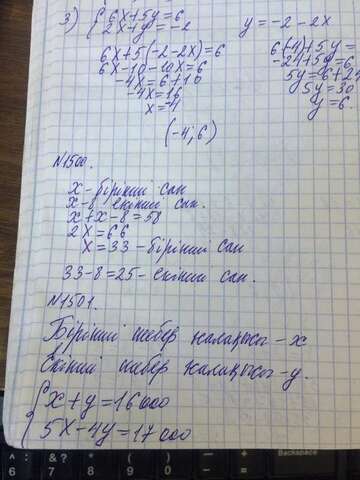 3) { 6x+5y=6
2x+y=-2
y=-2-2x
6x+5(-2-2x)=6
6x-10-10x=6
-4x=6+10
-4x=16
x=-4
6(-4)+5y=
-24+5y=6
5y=6+24
5y=30
y=6
(-4; 6)
№1500.
x-бірінші сан
x-8-екінші сан.
x+x-8=58
2x=66
x=33-бірінші сан
33-8=25-екінші сан.
№1501.
Бірінші шебер жалақысы-x
Екінші шебер жалақысы-y.
{ x+y=16000
5x-4y=17000
^ : &? * ( ) _ + Backspace
6 7 8 9 0 - =